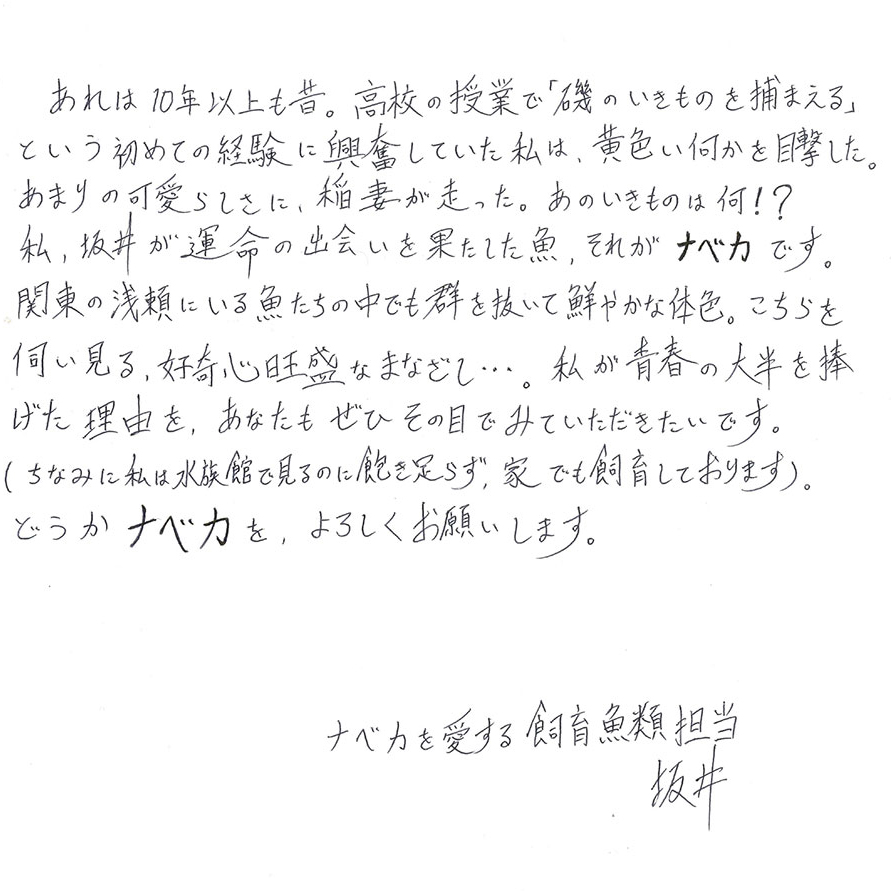 あれは10年以上も昔。高校の授業で「磯のいきものを捕まえる」
という初めての経験に興奮していた私は、黄色い何かを目撃した。
あまりの可愛らしさに、稲妻が走った。あのいきものは何!?
私、坂井が運命の出会いを果たした魚、それがナベカです。
関東の浅頼にいる魚たちの中でも群を抜いて鮮やかな体色。こちらを
伺い見る、好奇心旺盛なまなざし…。私が青春の大半を捧
げた理由を、あなたもぜひその目でみていただきたいです。
(ちなみに私は水族館で見るのに飽き足らず、家でも飼育しております)。
どうかナベカを、よろしくお願いします。
ナベカを愛する飼育魚類担当
坂井